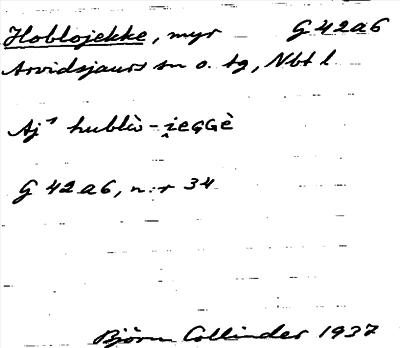 Hoblojekke, myr G 42a6
Arvidsjaurs sn o. tg, Nbt l.
Aj⁵ hublò-i̭eGGè
G 42a6, n:r 34
Björn Collinder 1937